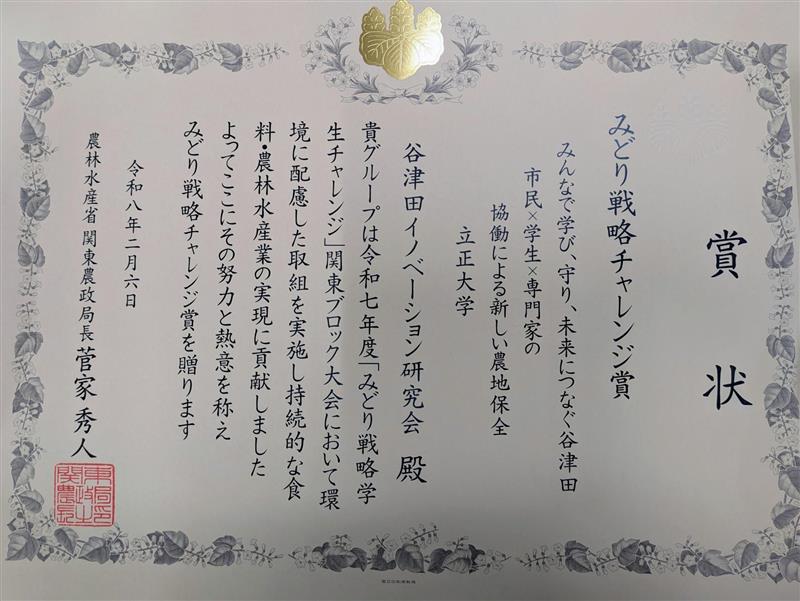 賞状
みどり戦略チャレンジ賞
みんなで学び、守り、未来につなぐ谷津田
市民×学生×専門家の
協働による新しい農地保全
立正大学
谷津田イノベーション研究会 殿
貴グループは令和七年度「みどり戦略学
生チャレンジ」関東ブロック大会において環
境に配慮した取組を実施し持続的な食
料・農林水産業の実現に貢献しました
よってここにその努力と熱意を称え
みどり戦略チャレンジ賞を贈ります
令和八年二月六日
農林水産省 関東農政局長 菅家秀人